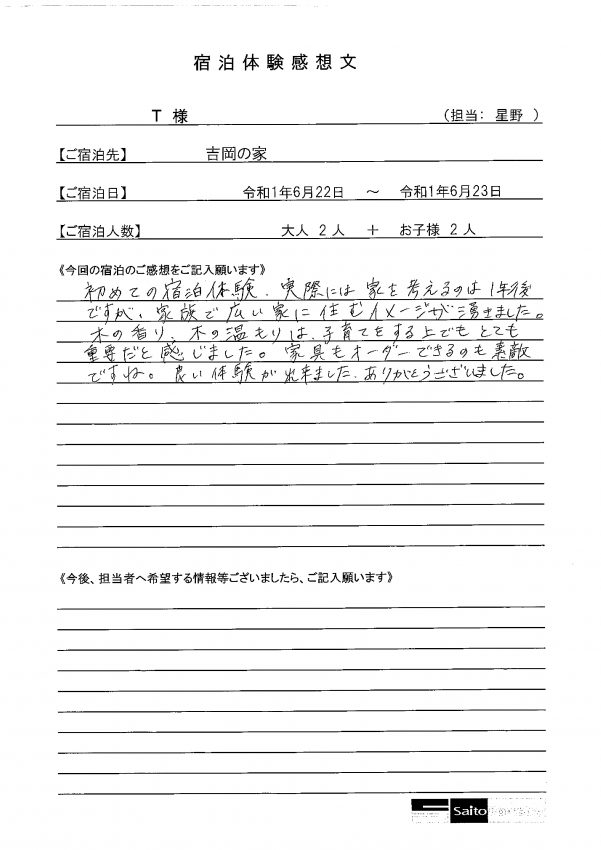 宿泊体験感想文
T 様 (担当: 星野 )
【ご宿泊先】 吉岡の家
【ご宿泊日】 令和1年6月22日 ～ 令和1年6月23日
【ご宿泊人数】 大人 2 人 ＋ お子様 2 人
《今回の宿泊のご感想をご記入願います》
初めての宿泊体験、実際には家を考えるのは1年後
ですが、家族で広い家に住むイメージが湧きました。
木の香り、木の温もりは、子育てをする上でもとても
重要だと感じました。家具もオーダーできるのも素敵
ですね。良い体験が出来ました、ありがとうございました。
《今後、担当者へ希望する情報等ございましたら、ご記入願います》
Saito